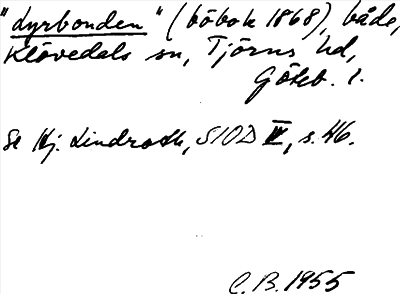 "Lyrbonden" (båbok 1868), både,
Klövedals sn, Tjörns hd,
Göteb. l.
Se Hj. Lindroth, SIOD IV, s. 46.
C.B. 1955